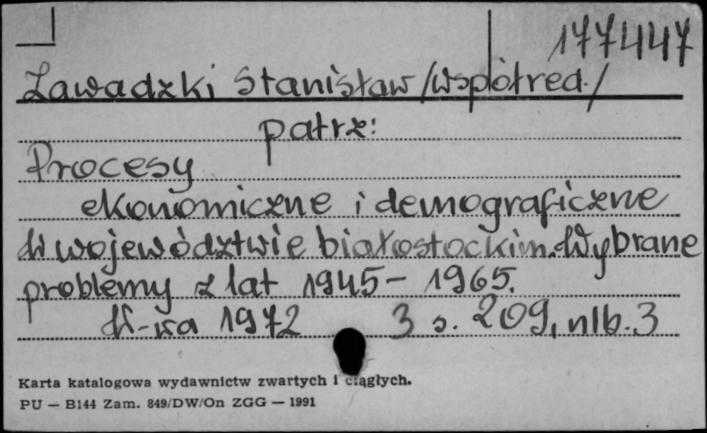 177447
Zawadzki Stanisław /współred./
patrz:
Procesy
ekonomiczne i demograficzne
w województwie białostockim. Wybrane
problemy z lat 1945-1965.
W-wa 1972 3 s. 209, nlb. 3
Karta katalogowa wydawnictw zwartych i ciągłych.
PU — B144 Zam. 849/DW/On ZGG — 1991